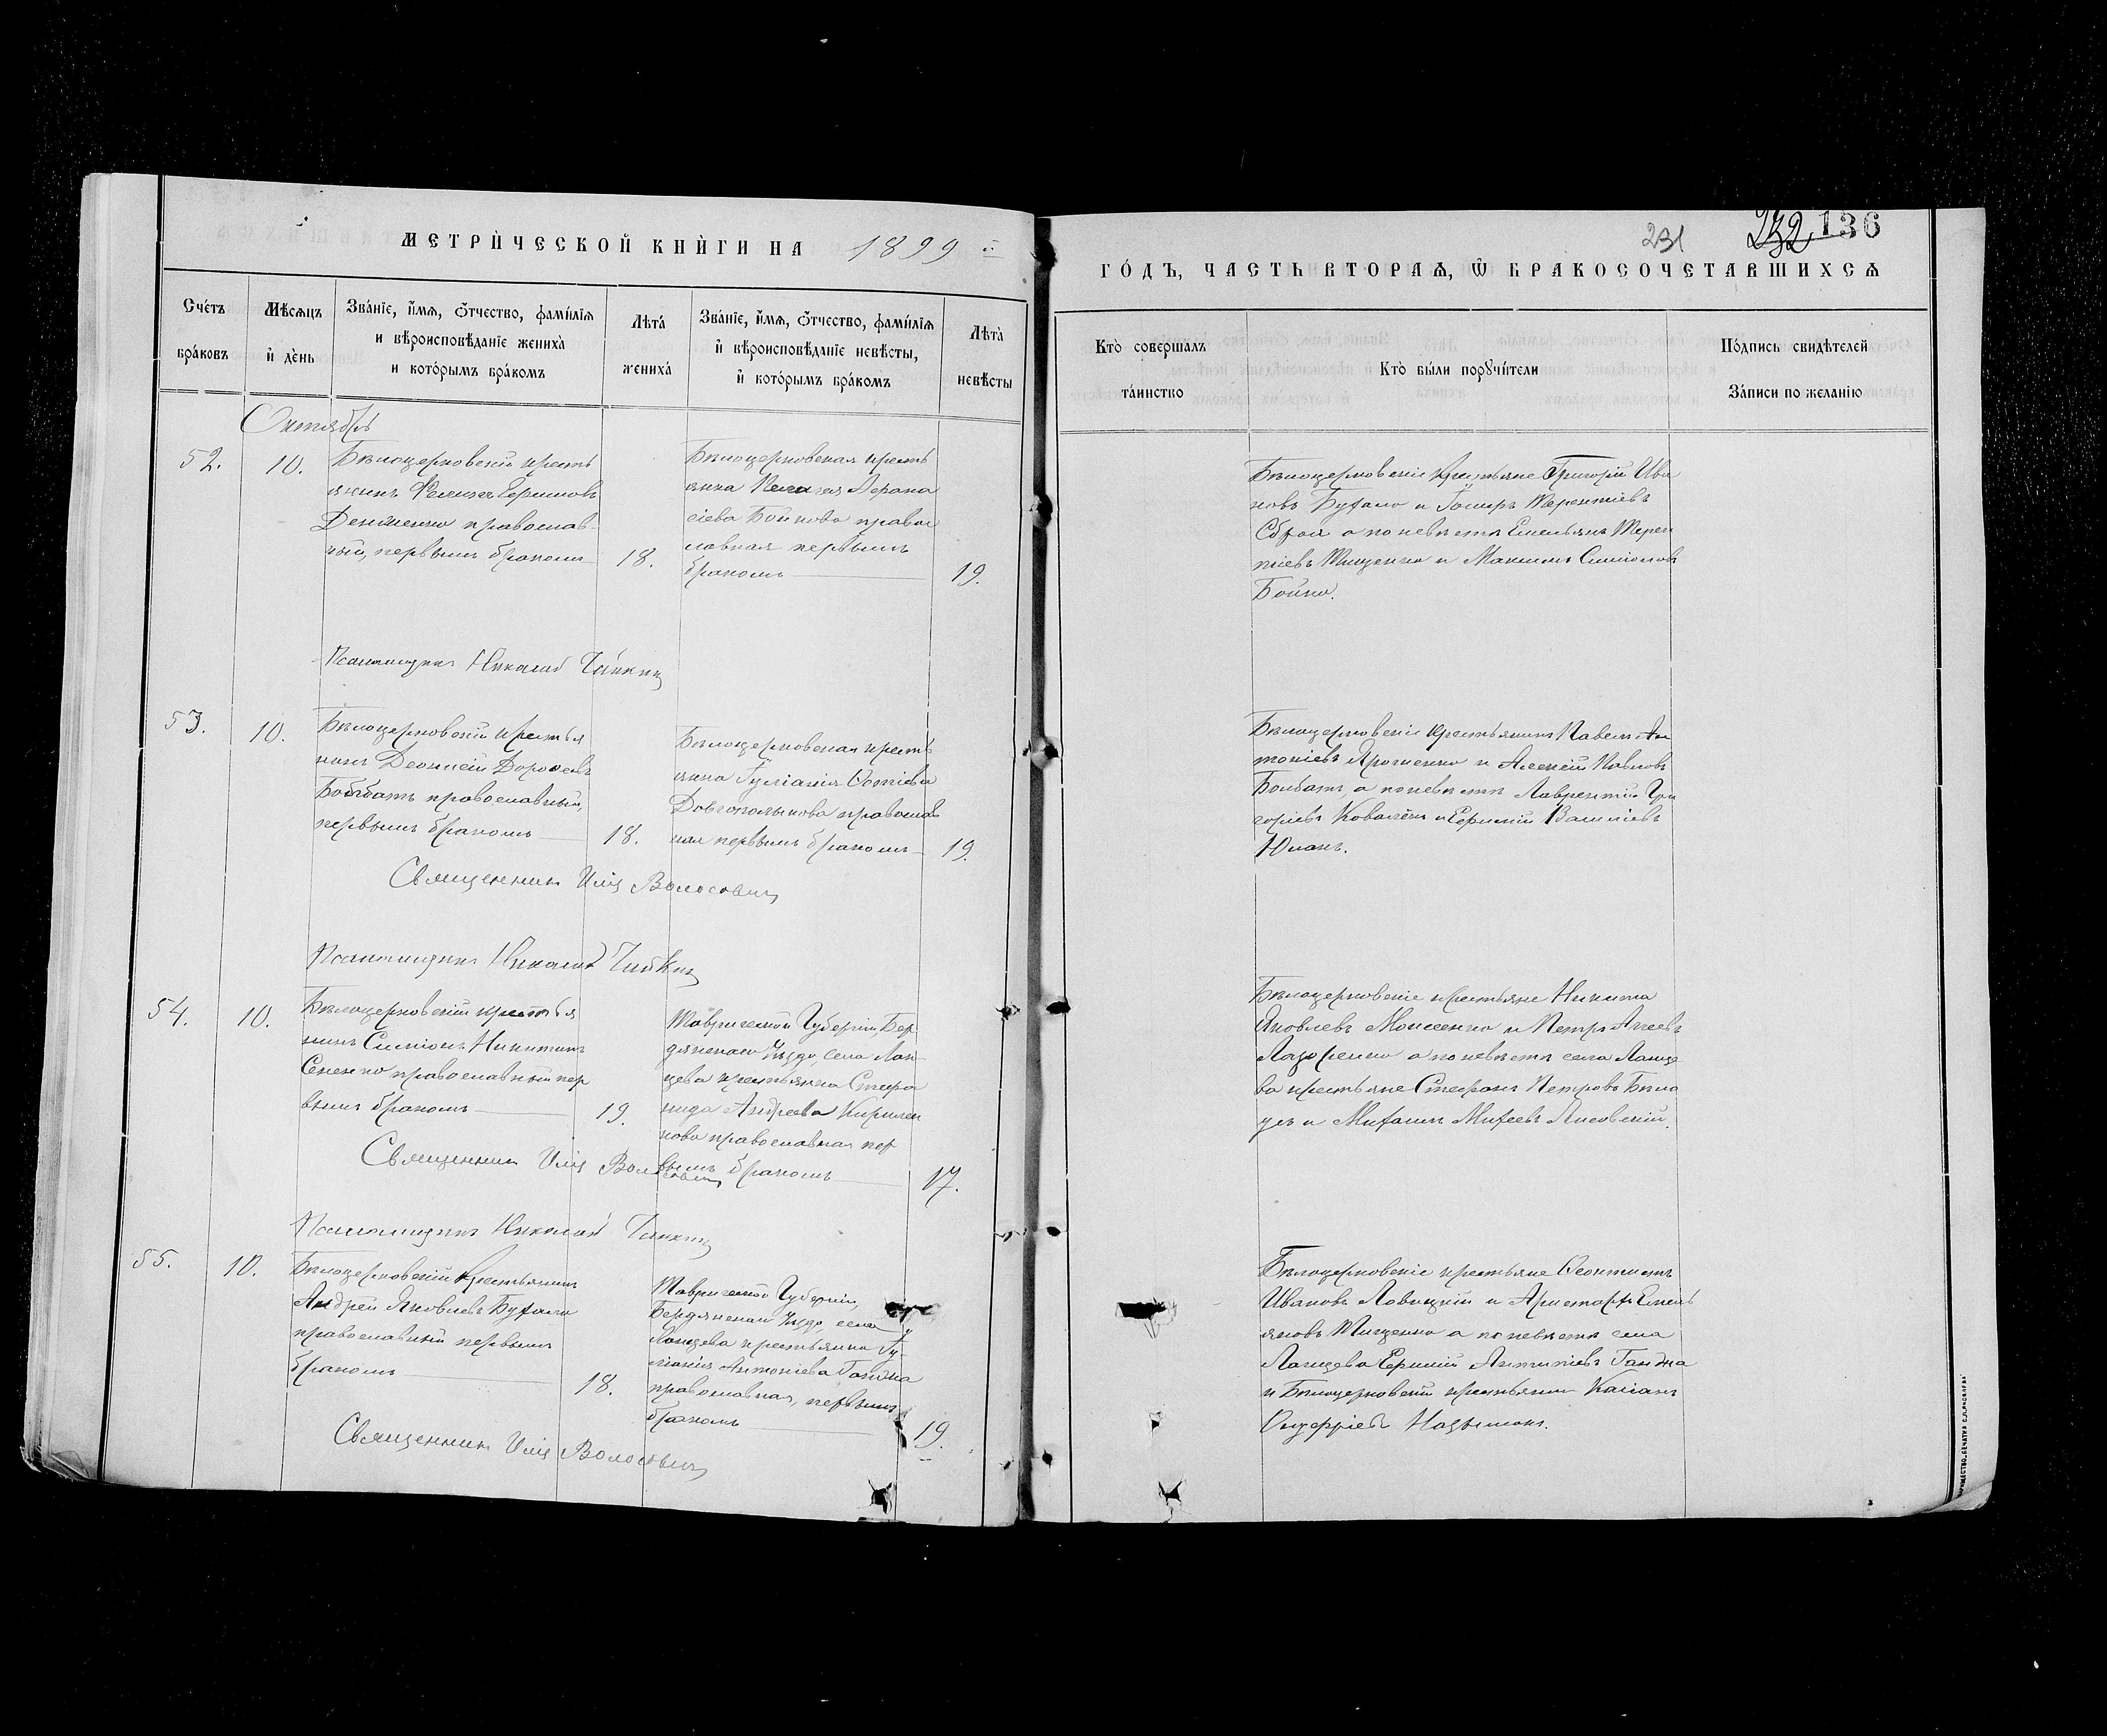 МЕТРИ́ЧЕСКОЙ КНИ́ГИ НА 1899
231 232 136
ГО́ДЪ, ЧАСТЬ ВТОРАѦ, Ѿ БРАКОСОЧЕТАВШИХСѦ
Сче́тъ
бра́ковъ
Мѣсѧцъ
и҆ дѐнь
Зва́нїе, и҆́мѧ, ѻ҆́тчество, фами́лїѧ
и вѣроисповѣ́данїе жениха̀
и кото́рымъ бра́комъ
Лѣта́
жениха́
Зва́нїе, и҆́мѧ, ѻ҆́тчество, фами́лїѧ
и҆ вѣроисповѣ́данїе невѣ́сты,
и҆ кото́рымъ бра́комъ
Лѣта̀
невѣ́сты
Кто̀ соверша́лъ
та́инство
Кто̀ бы́ли порꙋчи́тели
По́дпись свидѣ́телей
За́писи по жела́нїю
Октябрь
52.
10.
Бѣлоцерковскій кресть
янинъ Ефимовъ
православ-
ный, первымъ бракомъ
18.
Бѣлоцерковская кресть
янка Пелагея Афана
сіева Бойкова правос
лавная первымъ
бракомъ
19.
Бѣлоцерковскіе крестьяне Григорій Ива
новъ и Терентіевъ
а по невѣстѣ Емельянъ Терен
тіевъ Тищенко и Максимъ Симіоновъ
Бойко.
Псаломщикъ Николай
53.
10.
Бѣлоцерковскій крестья
нинъ Дороѳеевъ
православный,
первымъ бракомъ
18.
Бѣлоцерковская кресть
янка Іуліанія
Довгополыкова православ
ная первымъ бракомъ
19.
Бѣлоцерковскіе крестьянинъ Павелъ Ан
тоніевъ и Алексій Павловъ
а по невѣстѣ Лаврентій Гри
горіевъ Ковалёвъ и Ефимій Василіевъ
Юманъ.
Священникъ Илія Волосовичъ
Псаломщикъ Николай
54.
10.
Бѣлоцерковскій крестья
нинъ Симіонъ Никитинъ
православный пер
вымъ бракомъ
19.
Таврической Губерніи, Бер
дянскаго Уѣзда, села Лан-
цева крестьянка Стефа
нида Андреева Кирилен
кова православная пер
вымъ бракомъ
17.
Бѣлоцерковскіе крестьяне Никита
Яковлевъ Моисеенко и Петръ
Лазоренко а по невѣстѣ села Ланце
ва крестьяне Стефанъ Петровъ Бѣло
усъ и Михаилъ Михеевъ Лисовскій.
Священникъ Илія Волосовичъ
Псаломщикъ Николай
55.
10.
Бѣлоцерковскій крестьянинъ
Андрей Яковлевъ
православный первымъ
бракомъ
18.
Таврической Губерніи,
Бердянскаго Уѣзда, села
Ланцева крестьянка Іу-
ліанія Антоніева
православная, первымъ
бракомъ
19.
Бѣлоцерковскіе крестьяне Ѳеоктистъ
Ивановъ Лавицкій и Емель
яновъ Тищенко а по невѣстѣ села
Ланцева Ефимій
и Бѣлоцерковскій крестьянинъ Касіанъ
Онуфріевъ
Священникъ Илія Волосовичъ